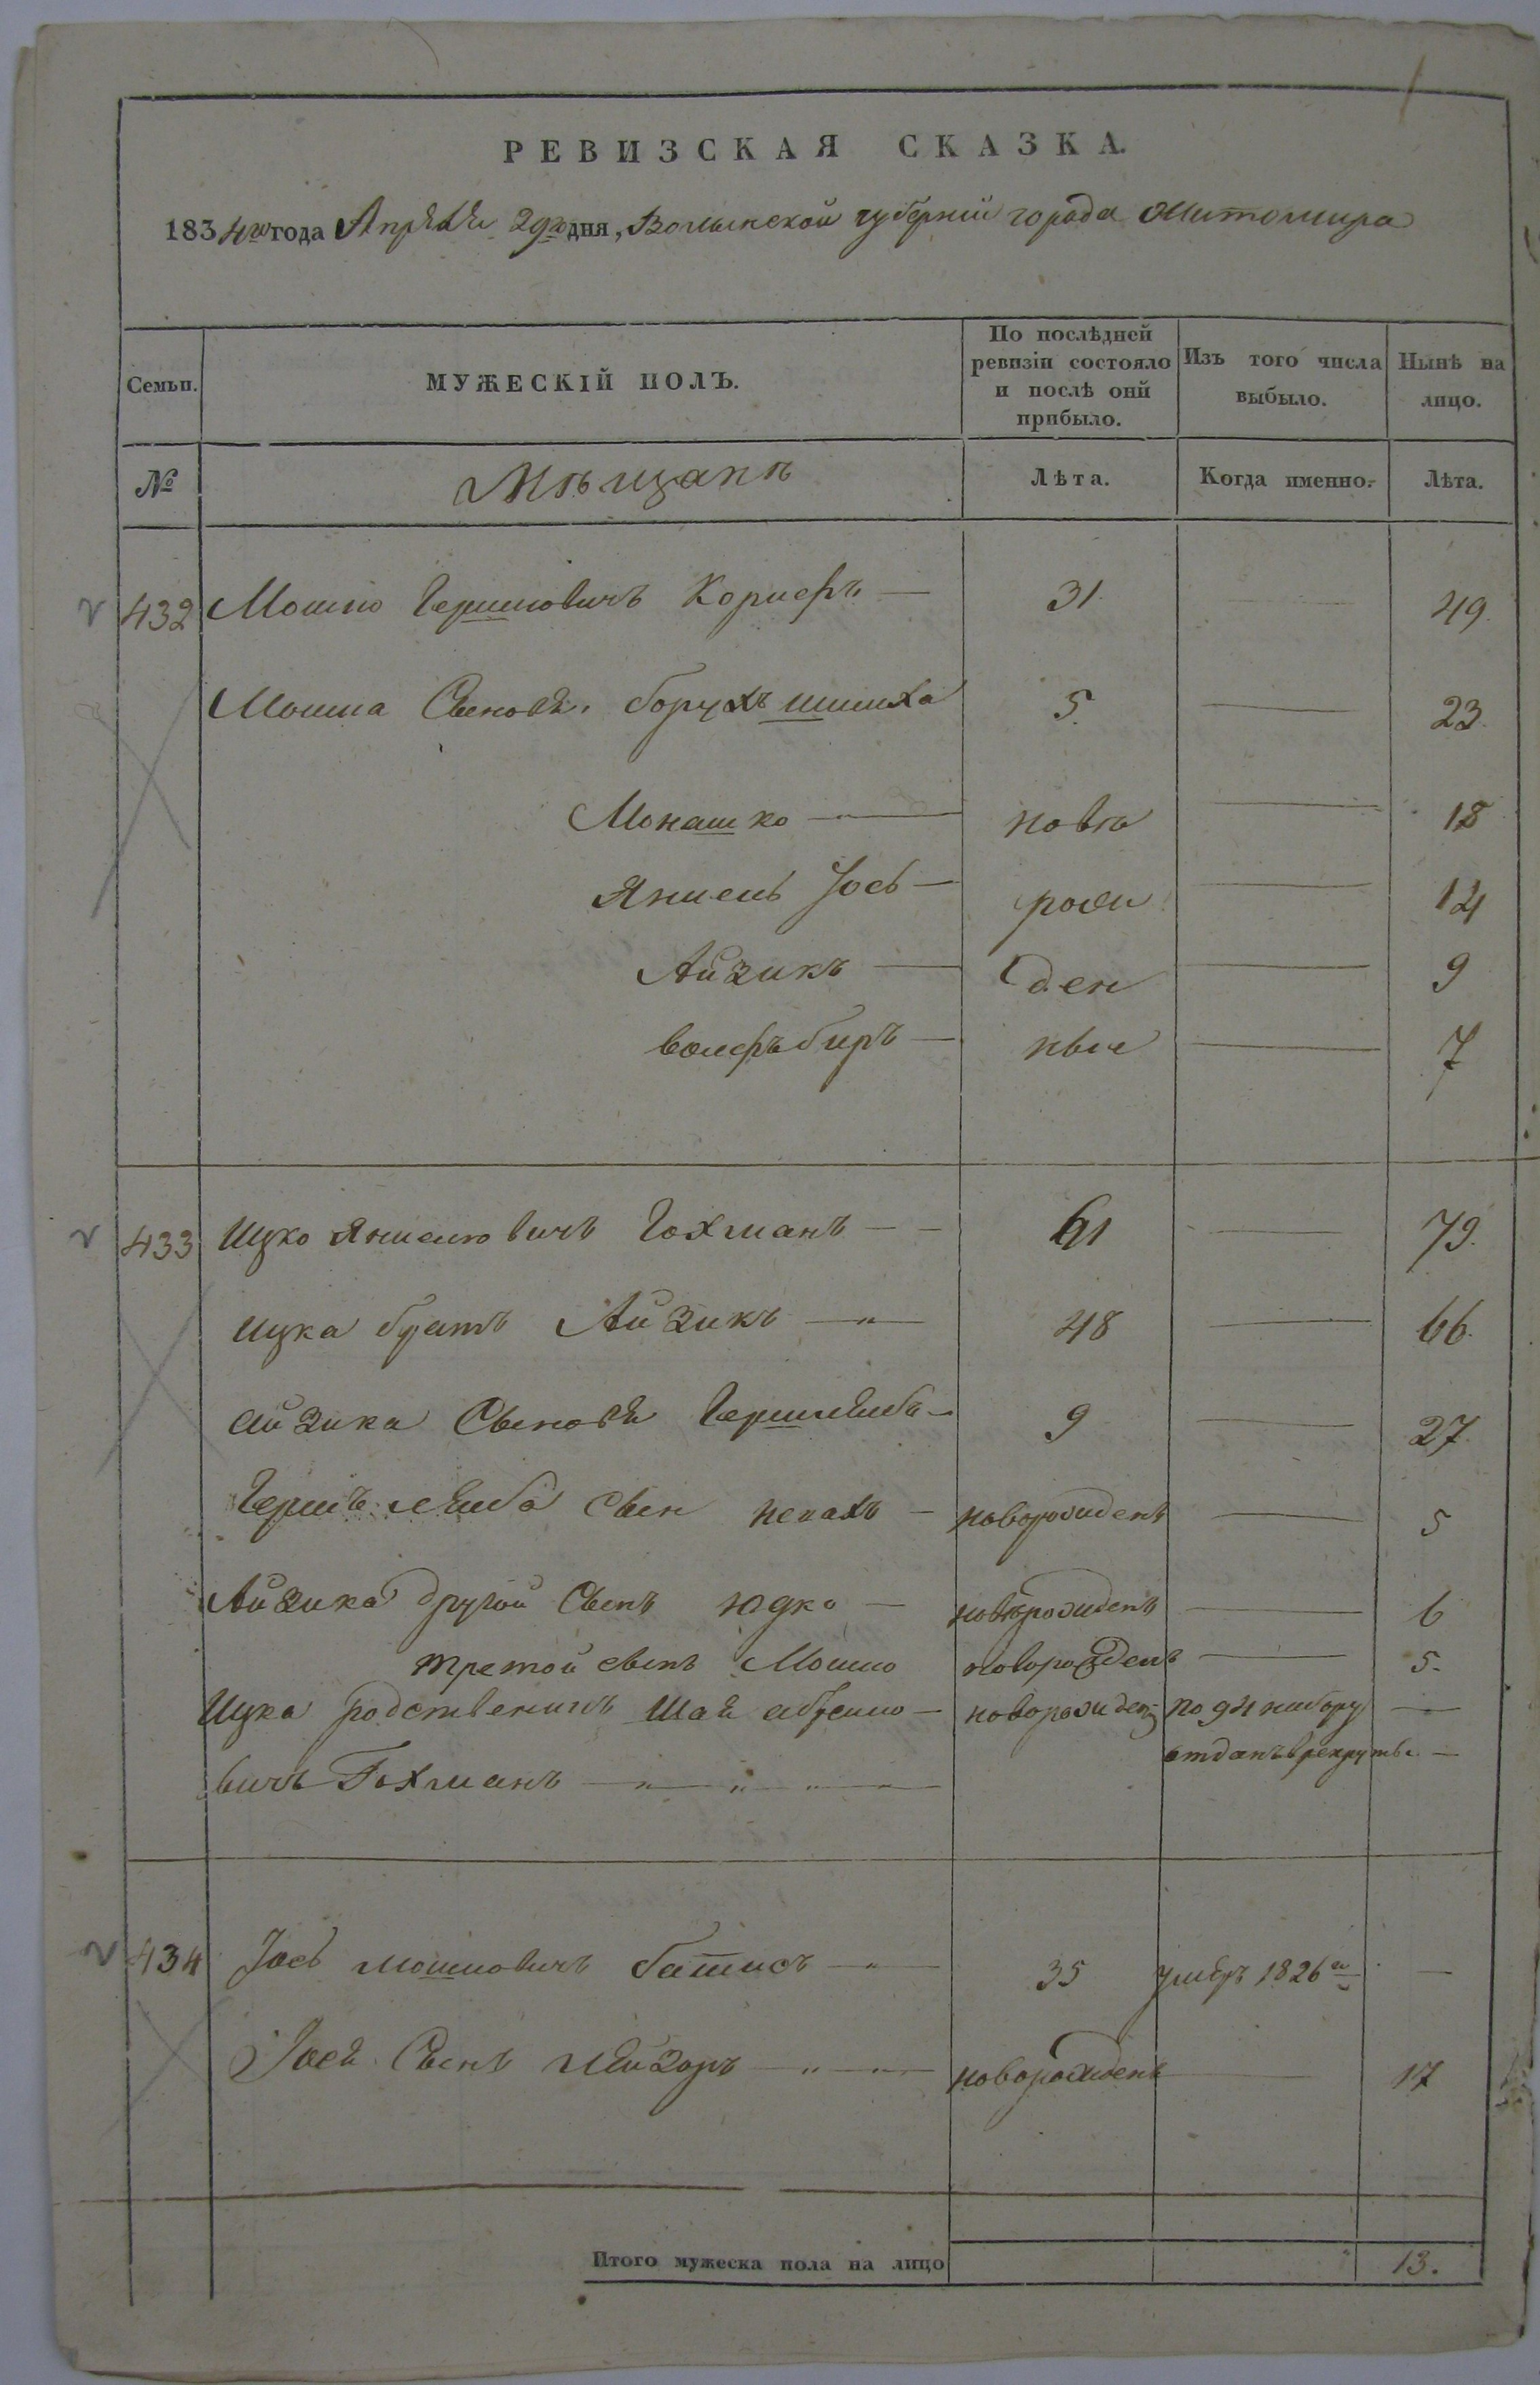 РЕВИЗСКАЯ СКАЗКА.
1834го года Апреля 29го дня, Волынской губерніи города Житомира
Семьи.
МУЖЕСКІЙ ПОЛЪ.
По послѣдней ревизіи состояло и послѣ оной прибыло.
Изъ того числа выбыло.
Нынѣ на лицо.
№
Мѣщанъ
Лѣта.
Когда именно.
Лѣта.
432 Мошко Гершковичъ Корнефъ — 31 — 49.
Мошка Сыновья. борухъ шимха 5. — 23.
Монашко — ново — 18
Янкель Іось — рожи — 14
Айзикъ — ден — 9
вольфъ биръ — ные — 7
433 Ицко Янкелювичъ Гохманъ — — 61 — 79.
ицка братъ Айзикъ — 48 — 66.
айзика Сыновья Гершлейба — 9 — 27.
Гершъ лейба сын песахъ — новорожденъ — 5
Айзика другой Сынъ Юдко — новорожденъ — 6
третой сынъ Мошко новорожденъ — 5.
Ицка родственикъ Шая абрамо — новорожденъ по 94 набору —
вичъ Гохманъ — отданъ в рекруты. —
434 Іось мошковичъ батисъ — 35 умеръ 1826го —
Іося Сынъ лейзоръ — новорожденъ — 17
Итого мужеска пола на лицо 13.